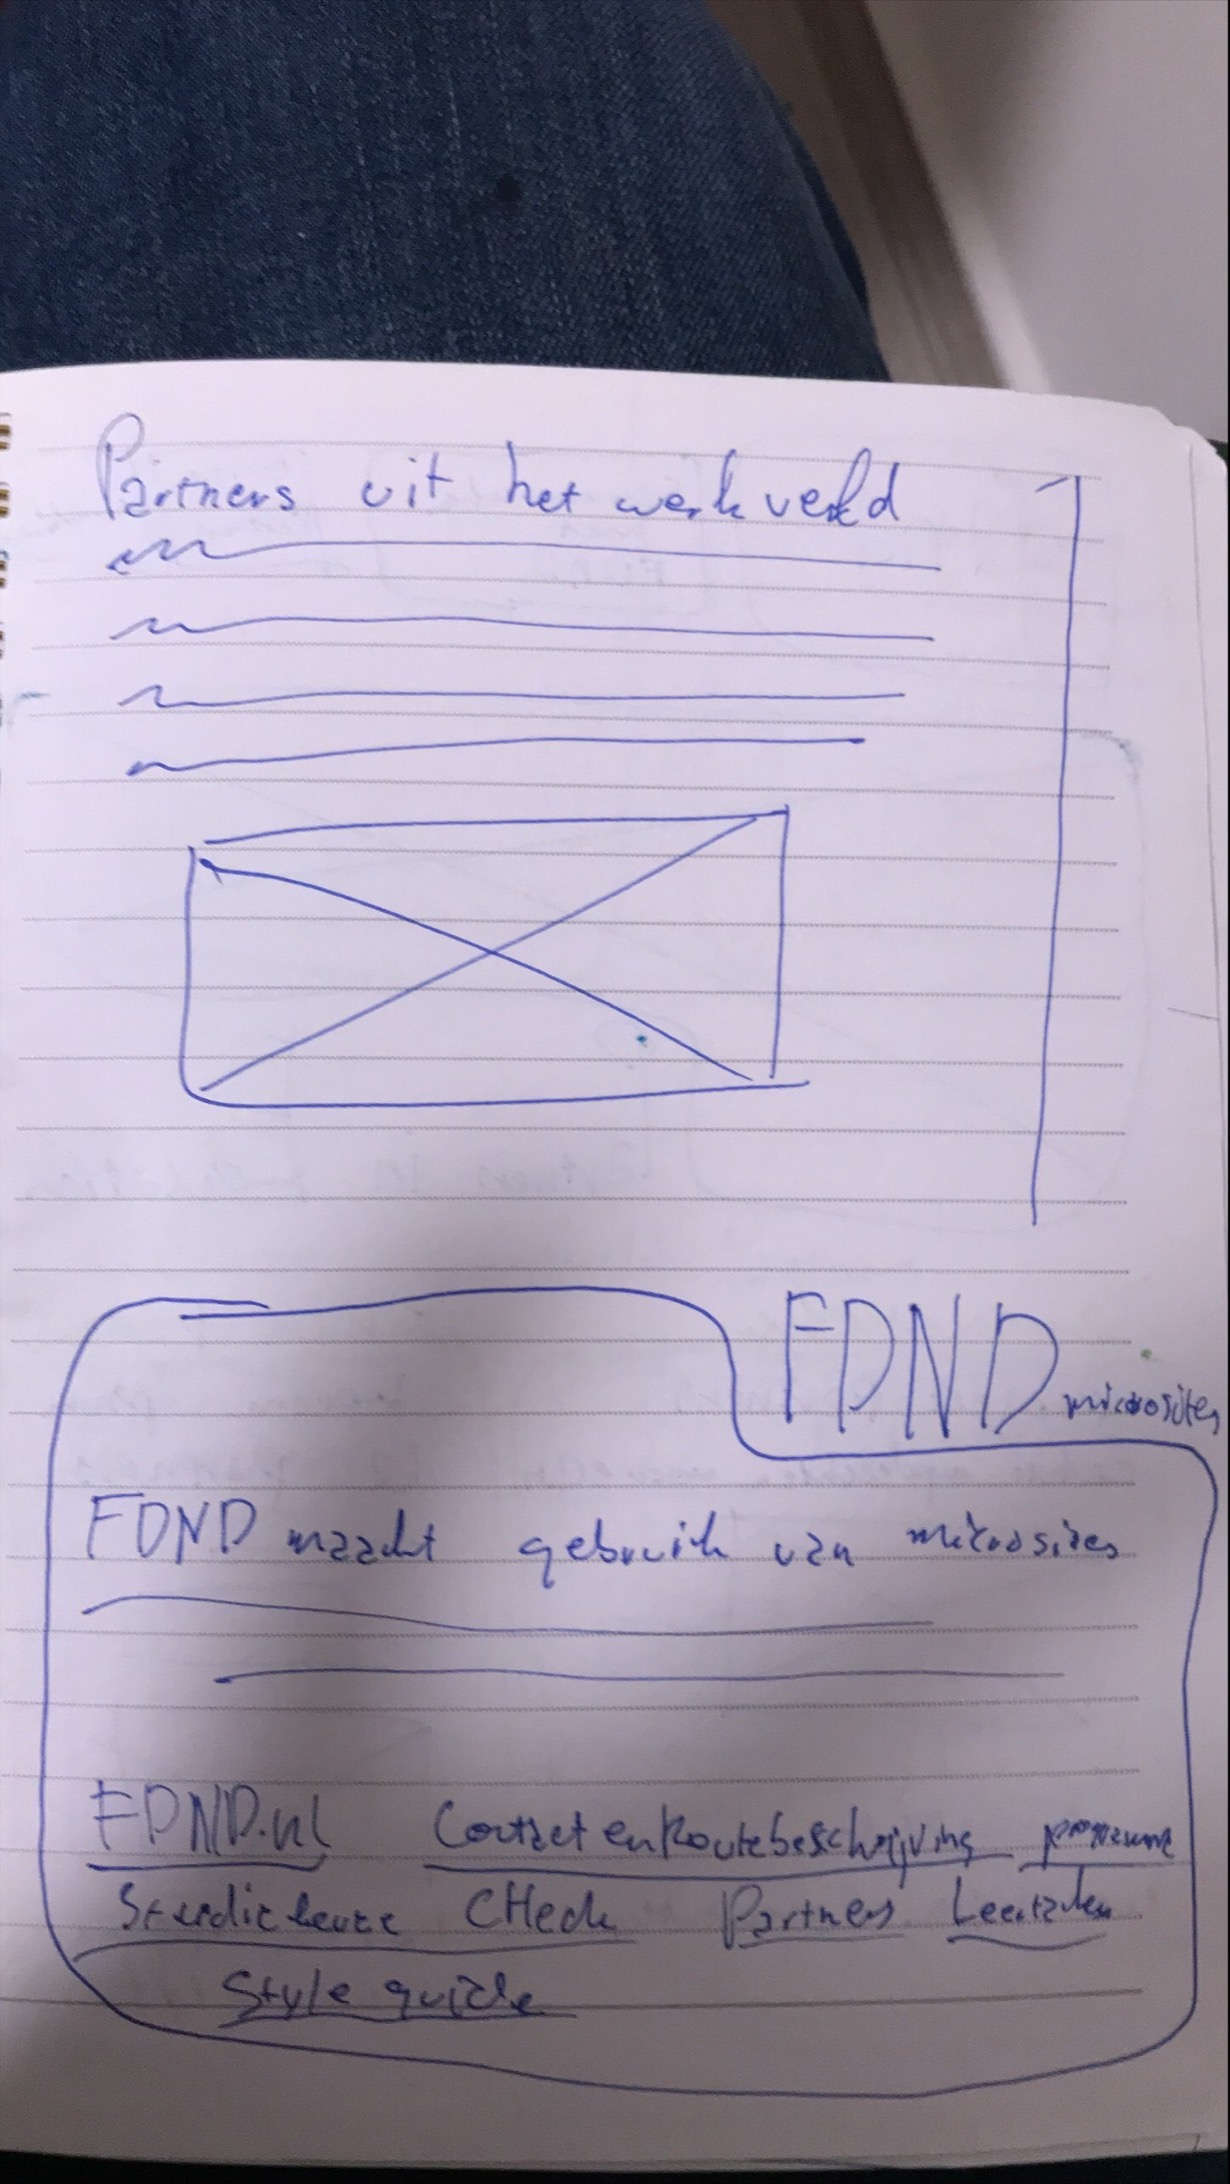 Partners uit het werkveld
FDND
microsites
FDND maakt gebruik van microsites
FDND.nl Contact en Routebeschrijving programma
Studiekeuze CHeck Partners Leertaken
Style guide